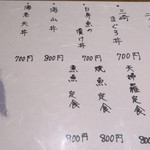 三崎まぐろ丼 700円
白身魚の漬け丼 700円
海山丼 800円
海老天丼 700円
天婦羅定食 800円
焼魚定食 800円
煮魚定食 800円